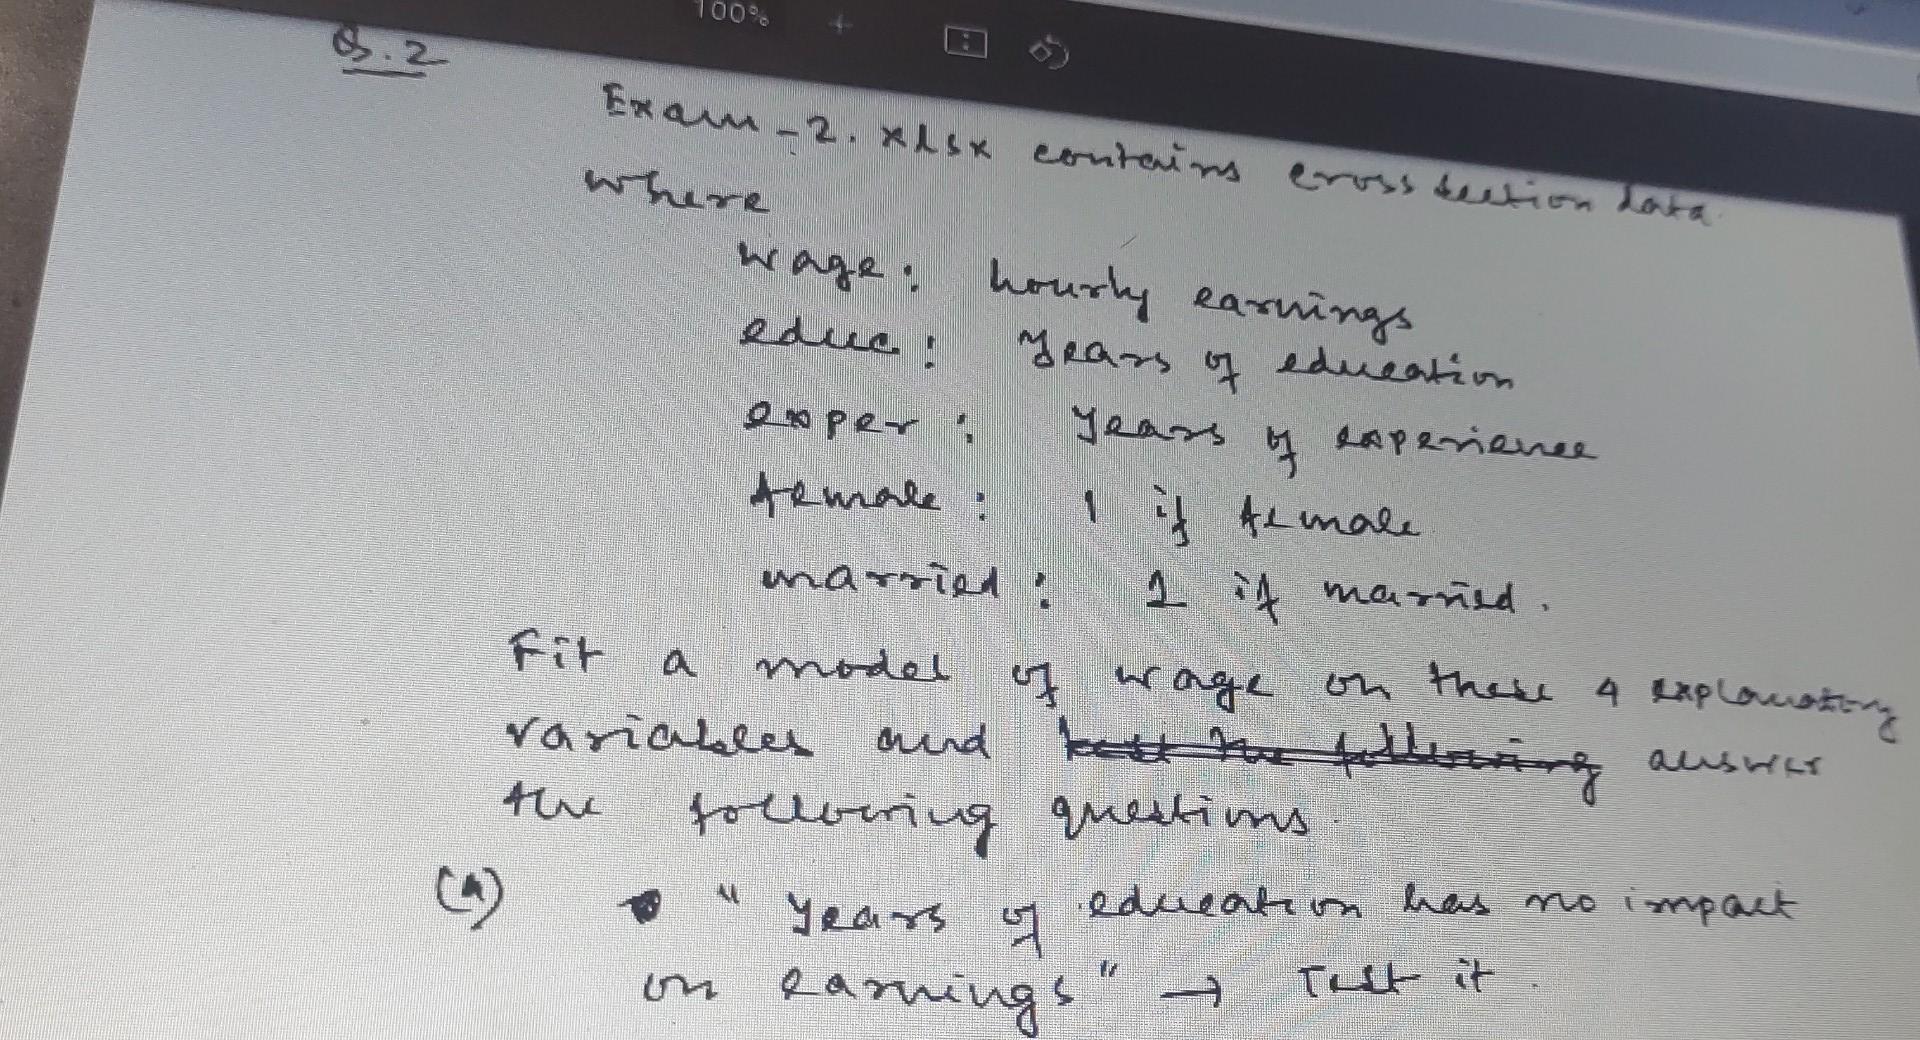 100% +
Q.2
Exam-2.xlsx contains cross section data.
where
wage: hourly earnings
educ: years of education
exper: years of experience
female: 1 if female
married: 1 if married.
Fit a model of wage on these 4 explanatory
variables and test the following answer
the following questions.
(a) "Years of education has no impact
on earnings" → Test it.